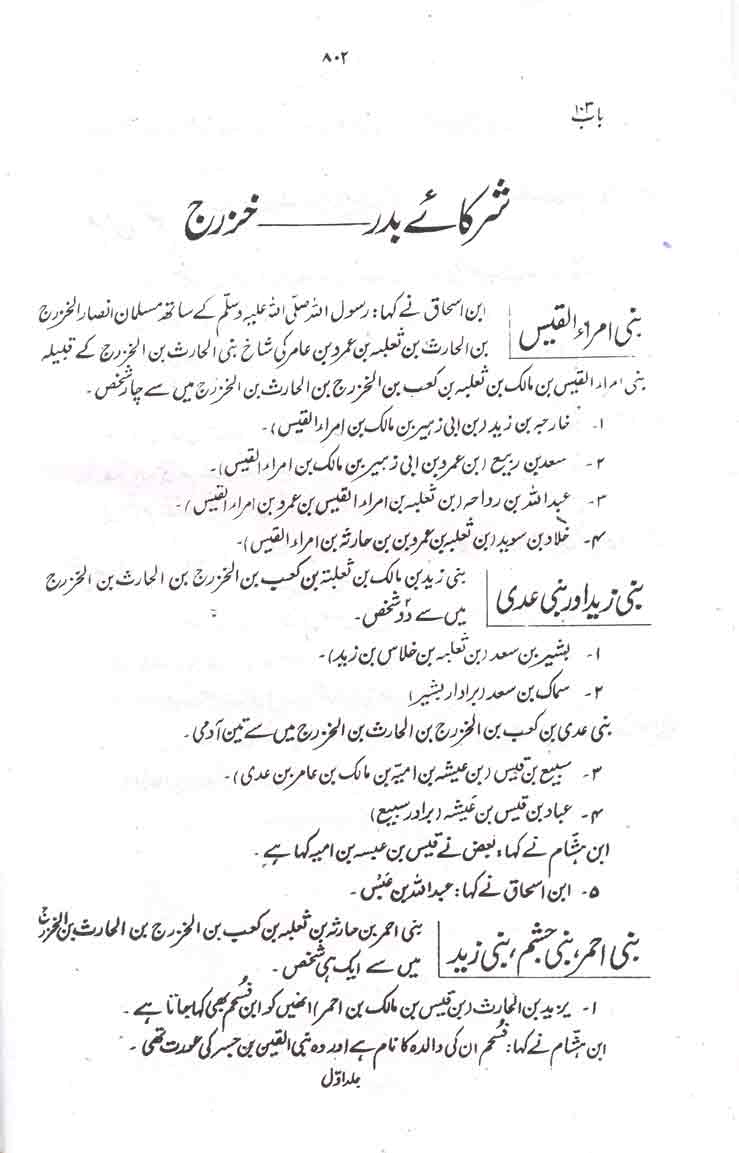 ۸۰۲
باب ۱۰۳
شرکائے بدر ــــــ خزرج
بنی امراء القیس
ابن اسحاق نے کہا: رسول اللہ صلّی اللہ علیہ وسلّم کے ساتھ مسلمان انصار الخزرج
بن الحارث بن ثعلبہ بن عمرو بن عامر کی شاخ بنی الحارث بن الخزرج کے قبیلہ
بنی امراء القیس بن مالک بن ثعلبہ بن کعب بن الخزرج بن الحارث بن الخزرج میں سے چار شخص۔
۱۔ خارجہ بن زید (بن ابی زہیر بن مالک بن امراء القیس)۔
۲۔ سعد بن ربیع (بن عمرو بن ابی زہیر بن مالک بن امراء القیس)۔
۳۔ عبداللہ بن رواحہ (بن ثعلبہ بن امراء القیس بن عمرو بن امراء القیس)۔
۴۔ خلاد بن سوید (بن ثعلبہ بن عمرو بن بن حارثہ بن امراء القیس)۔
بنی زید اور بنی عدی
بنی زید بن مالک بن ثعلبتہ بن کعب بن الخزرج بن الحارث بن الخزرج
میں سے دو شخص۔
۱۔ بشیر بن سعد (بن ثعلبہ بن خلاس بن زید)۔
۲۔ سماک بن سعد (برادار بشیر)
بنی عدی بن کعب بن الخزرج بن الحارث بن الخزرج میں سے تین آدمی۔
۳۔ سبیع بن قیس (بن عیشہ بن امیّہ بن مالک بن عامر بن عدی)۔
۴۔ عباد بن قیس بن عَیشہ (برادر سبیع)
ابن ہشّام نے کہا: بعض نے قیس بن عبسہ بن امیہ کہا ہے۔
۵۔ ابن اسحاق نے کہا: عبداللہ بن عبْس۔
بنی احمر، بنی جشم، بنی زید
بنی احمر بن حارثہ بن ثعلبہ بن کعب بن الخزرج بن الحارث بن الخزرج
میں سے ایک ہی شخص۔
۱۔ یزید بن الحارث (بن قیس بن مالک بن احمر) انھیں کو ابن فُسحُم بھی کہا جاتا ہے۔
ابن ہشّام نے کہا: فُسحُم ان کی والدہ کا نام ہے اور وہ بنی القین بن جسر کی عورت تھی۔
جلد اوّل